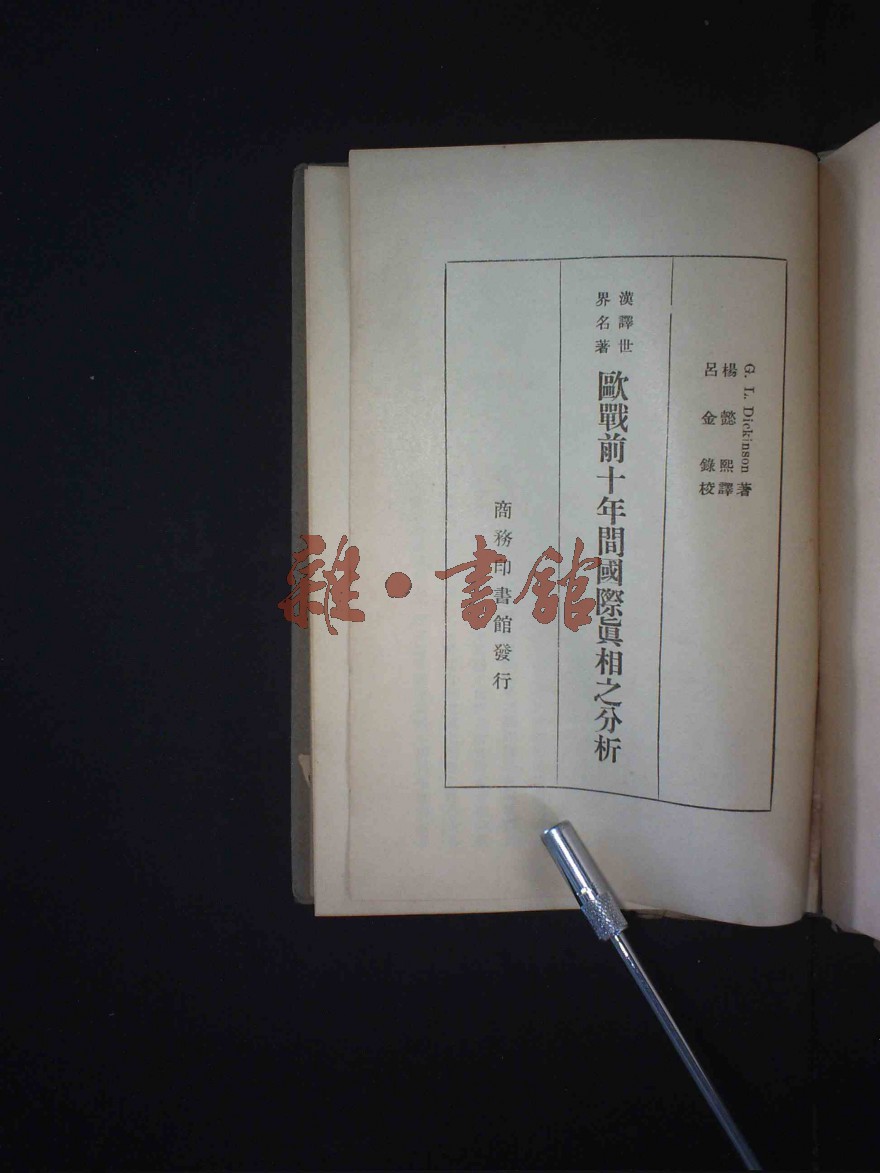 G. L. Dickinson 著
楊懿熙譯
呂金錄校
漢譯世
界名著
歐戰前十年間國際眞相之分析
商務印書館發行
雜·書館